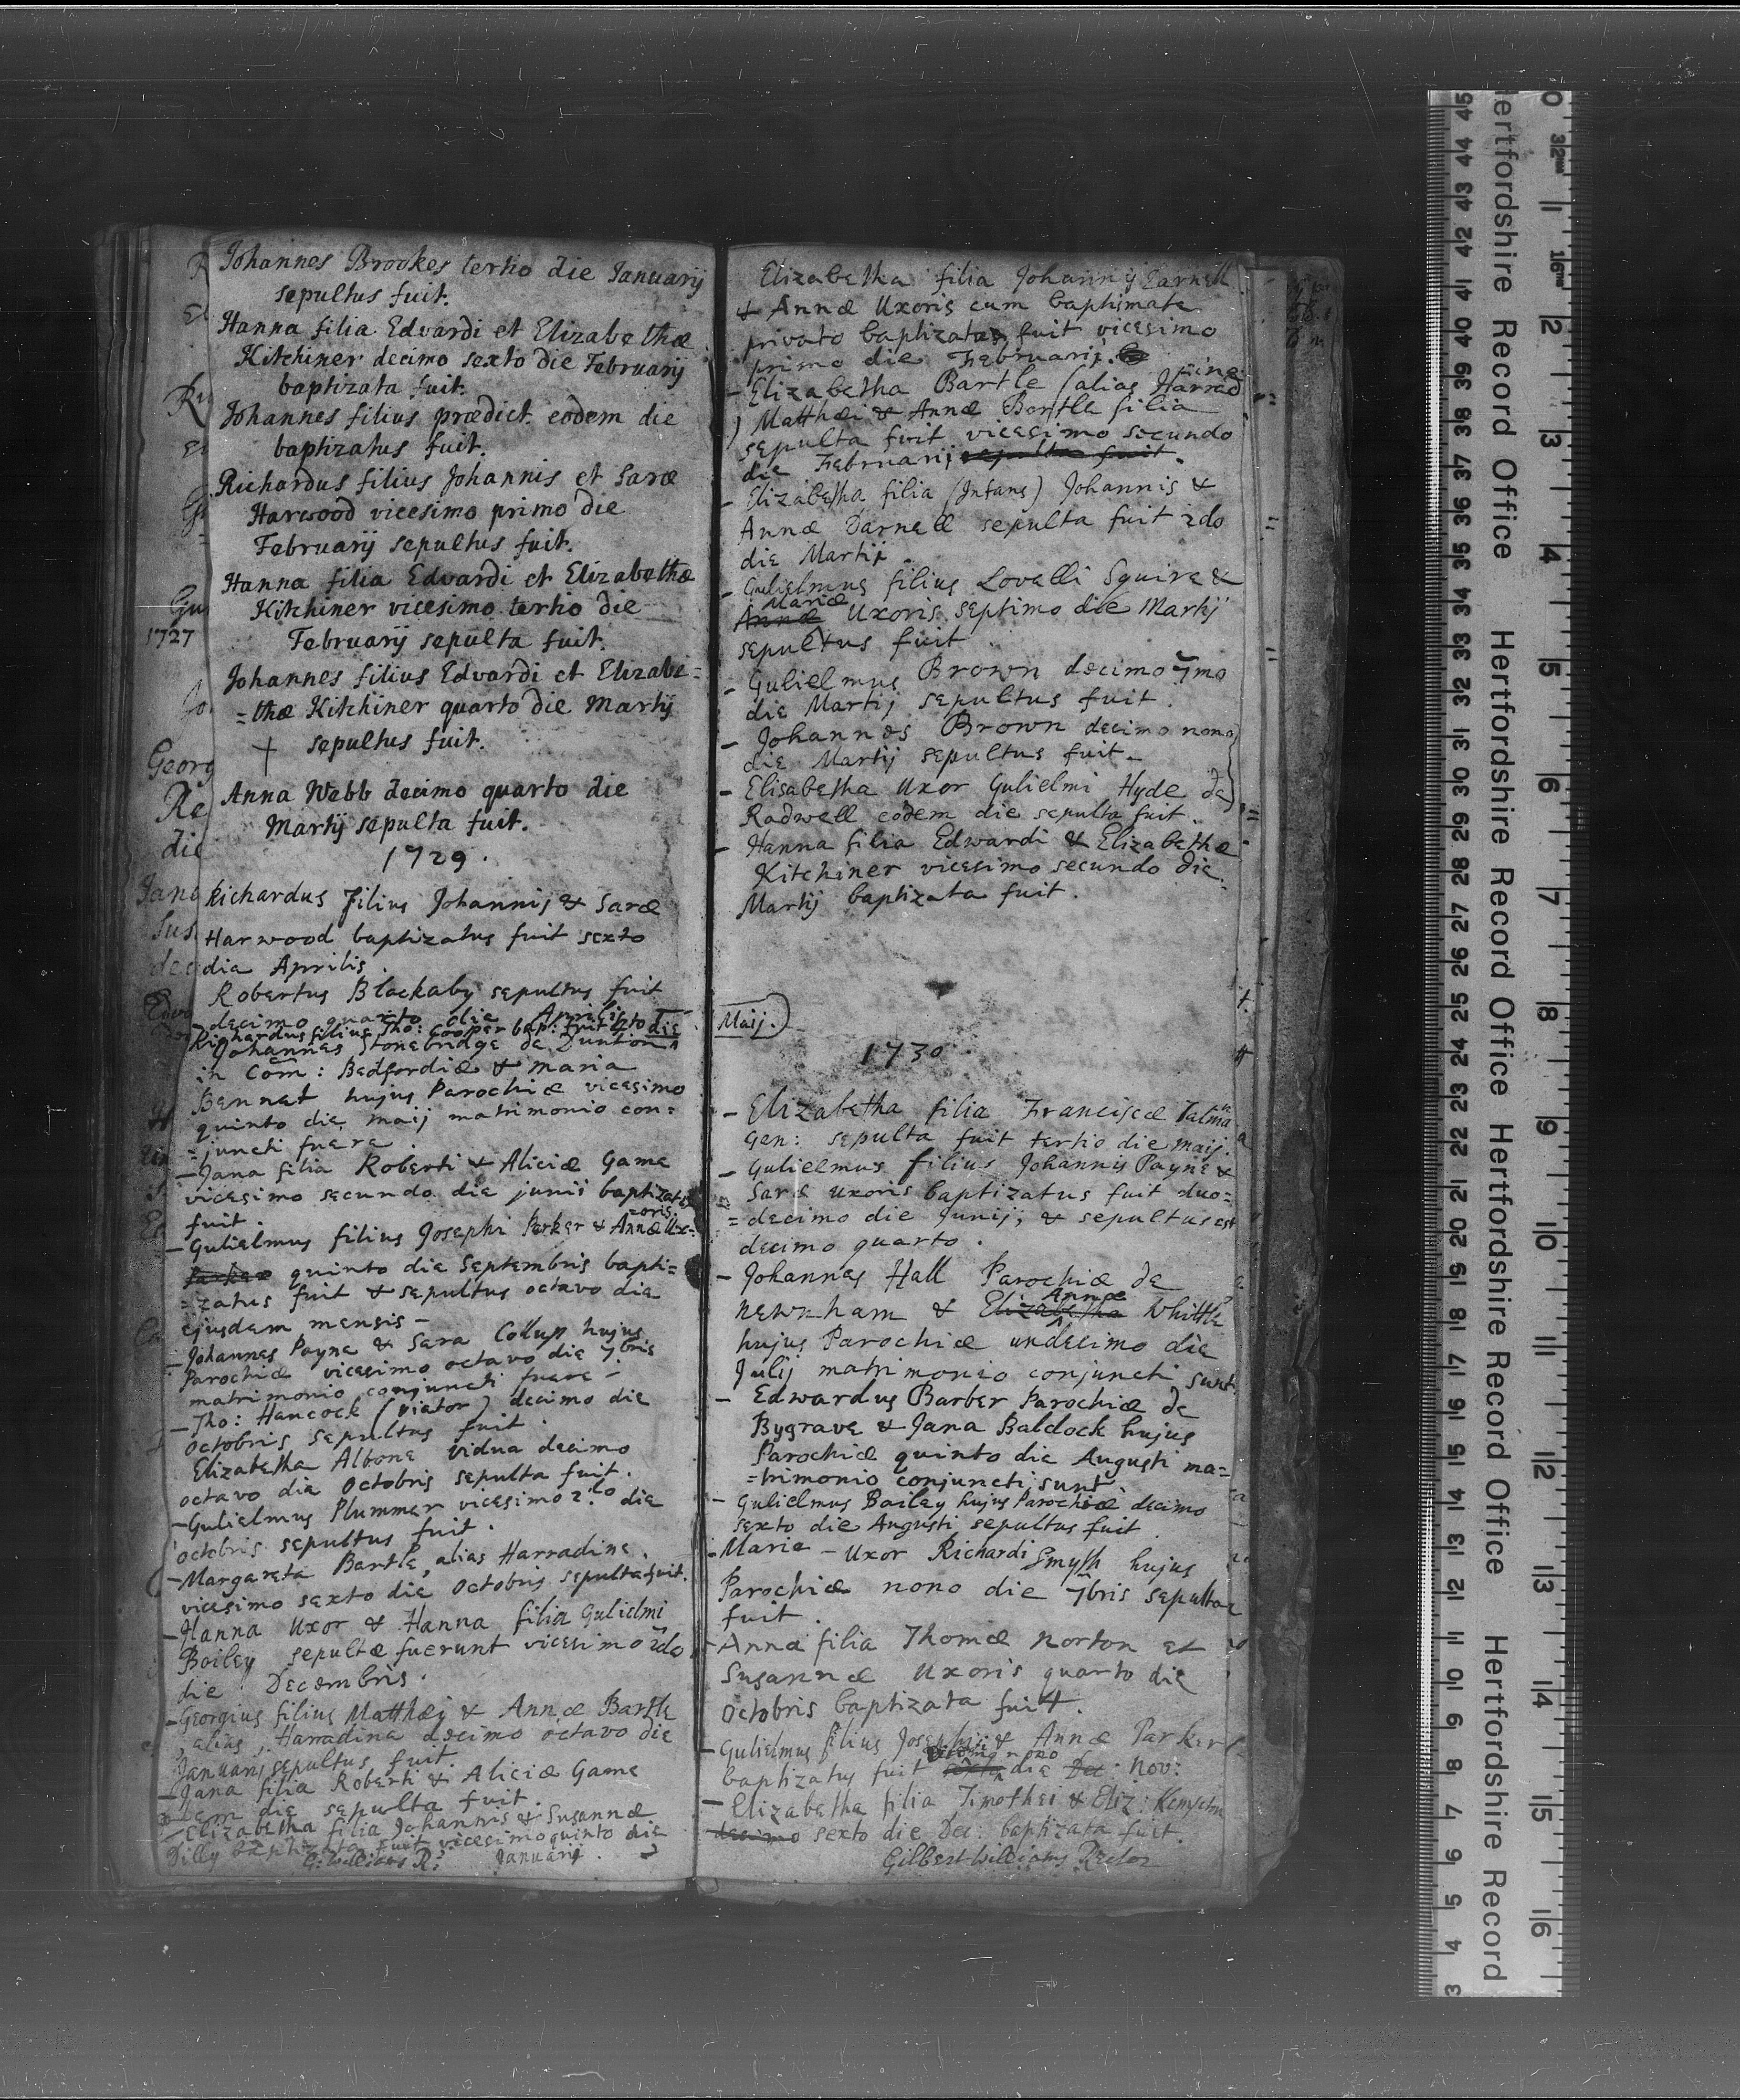 Johannes Brookes tertio die Januarij
sepultus fuit.
Hanna filia Edvardi et Elizabethæ
Kitchiner decimo sexto die Februarij
baptizata fuit.
Johannes filius prædict. eodem die
baptizatus fuit.
Richardus filius Johannis et Saræ
Harwood vicesimo primo die
Februarij sepultus fuit.
Hanna filia Edvardi et Elizabethæ
Kitchiner vicesimo tertio die
Februarij sepulta fuit.
Johannes filius Edvardi et Elizabe=
=thæ Kitchiner quarto die Martij
+ sepultus fuit.
Anna Webb decimo quarto die
Martij sepulta fuit.
1729.
Richardus filius Johannis & Saræ
Harwood baptizatus fuit sexto
die Aprilis.
Robertus Blackaby sepultus fuit
decimo quarto die Aprilis
Richardus filius Tho: Cooper bap: fuit die
Johannes Stonebridge de Dunton
in Com: Bedfordiæ & Maria
Bennet hujus Parochiæ vicesimo
quinto die Maij matrimonio con=
=juncti fuere.
- Jana filia Roberti & Aliciæ Game
vicesimo secundo die junii baptizata
fuit.
- Gulielmus filius Josephi Parker & Annæ Ux=
=oris
Parker quinto die Septembris bapti=
=zatus fuit & sepultus octavo die
ejusdem mensis -
- Johannes Payne & Sara Collup hujus
Parochiæ vicesimo octavo die 7bris
matrimonio conjuncti fuere -
- Tho: Hancock (viator) decimo die
Octobris sepultus fuit.
Elizabetha Albone vidua decimo
octavo die Octobris sepulta fuit.
- Gulielmus Plummer vicesimo 2do die
octobris sepultus fuit.
- Margareta Bartle, alias Harradine.
vicesimo sexto die Octobris sepulta fuit.
- Hanna Uxor & Hanna filia Gulielmi
Boiley sepultæ fuerunt vicesimo 2do
die Decembris.
- Georgius filius Matthæi & Annæ Bartle
alias, Harradine decimo octavo die
Januarij sepultus fuit
- Jana filia Roberti & Aliciæ Game
die sepulta fuit.
- Elizabetha filia Johannis & Susannæ
Dilly baptizata fuit vicesimo quinto die
G: Williams R: Januarij.
Elizabetha filia Johannis Darnell
& Annæ Uxoris cum baptismate
privato baptizata fuit vicesimo
primo die Februarij.
- Elizabetha Bartle (alias Harrad
ine
) Matthæi & Annæ Bartle filia
sepulta fuit vicesimo secundo
die Februarij sepulta fuit.
- Elizabetha filia (Infans) Johannis &
Annæ Darnell sepulta fuit 2do
die Martij
- Gulielmus filius Lovelli Squire &
Mariæ
Annæ Uxoris septimo die Martij
sepultus fuit
- Gulielmus Brown decimo 7mo
die Martij sepultus fuit.
- Johannes Brown decimo nono
die Martij sepultus fuit -
- Elisabetha Uxor Gulielmi Hyde de
Radwell eodem die sepulta fuit.
- Hanna filia Edwardi & Elizabethæ
Kitchiner vicesimo secundo die
Martij baptizata fuit.
Maij.
1730
- Elizabetha filia Franciscæ
Gen: sepulta fuit tertio die Maij.
- Gulielmus filius Johannis Payne &
Saræ uxoris baptizatus fuit duo=
=decimo die Junij, & sepultus est
decimo quarto.
- Johannes Hall Parochiæ de
Annæ
Newnham & Elizabetha Whittle
hujus Parochiæ undecimo die
Julij matrimonio conjuncti sunt.
- Edwardus Barber Parochiæ de
Bygrave & Jana Baldock hujus
Parochiæ quinto die Augusti ma=
=trimonio conjuncti sunt.
- Gulielmus Bailey hujus Parochiæ decimo
sexto die Augusti sepultus fuit
- Maria - Uxor Richardi Smyth hujus
Parochiæ nono die 7bris sepulta
fuit.
- Anna filia Thomæ Norton et
Susannæ Uxoris quarto die
Octobris baptizata fuit.
- Gulielmus filius Josephi & Annæ Parker
decimo nono
baptizatus fuit sexto die Dec: Nov:
- Elizabetha filia Timothei & Eliz:
decimo sexto die Dec: baptizata fuit.
Gilbert Williams Rector
1727
Georg
Re
die
Hertfordshire Record Office Hertfordshire Record Office Hertfordshire Record Office Hertfordshire Record